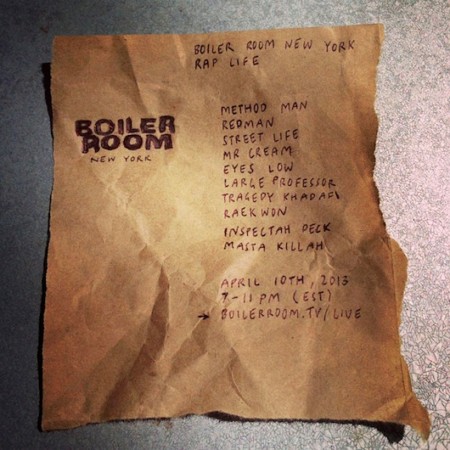 BOILER ROOM NEW YORK
RAP LIFE
BOILER
ROOM
NEW YORK
METHOD MAN
REDMAN
STREET LIFE
MR CREAM
EYES LOW
LARGE PROFESSOR
TRAGEDY KHADAFI
RAEKWON
INSPECTAH DECK
MASTA KILLAH
APRIL 10TH, 2013
7-11 PM (EST)
→ BOILERROOM.TV/LIVE